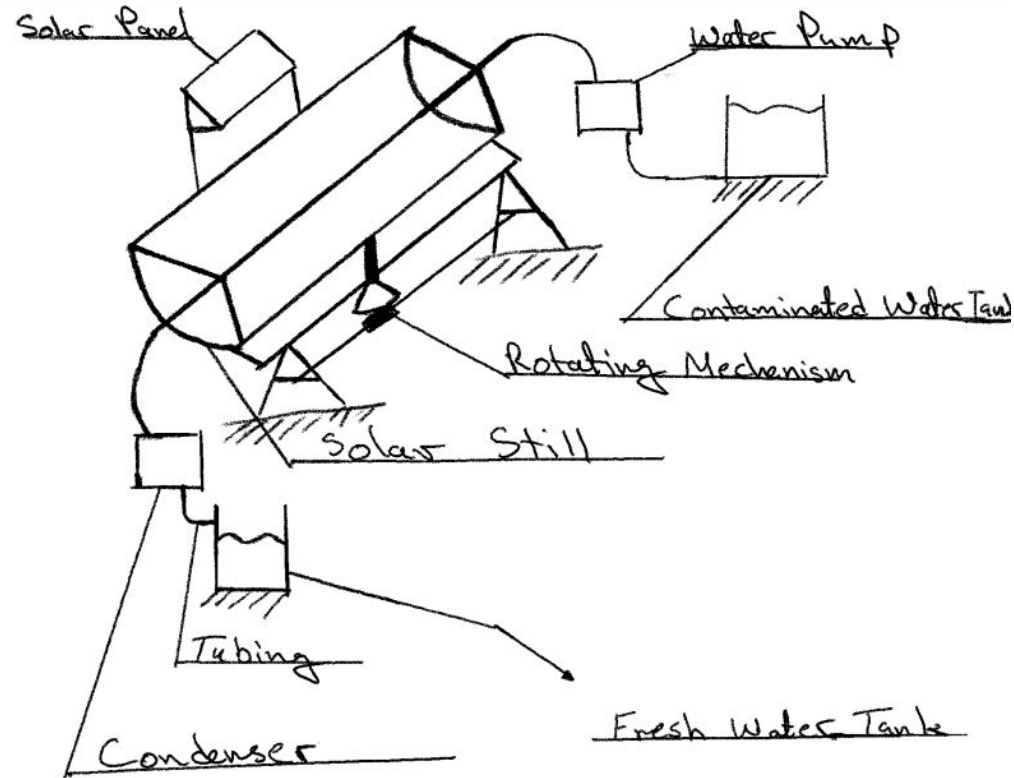 Solar Panel
Water Pump
Contaminated Water Tank
Rotating Mechenism
Solar Still
Tubing
Fresh Water Tank
Condenser